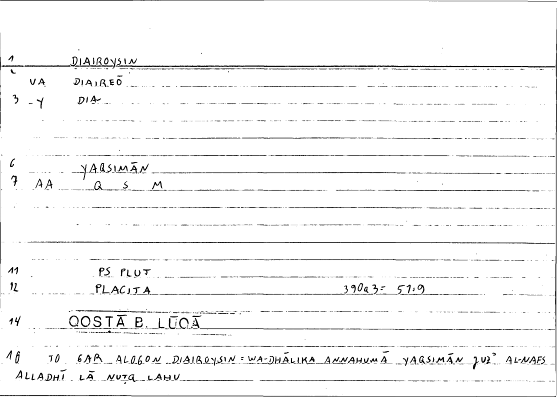 1 DIAIROYSIN
VA DIAIREŌ
3 -Y DIA-
6 YAQSIMĀN
7 AA Q S M
11 PS PLUT
12 PLACITA 390a3= 57.9
14 QOSṬĀ B. LŪQĀ
18 TO GAR ALOGON DIAIROYSIN = WA-DHĀLIKA ANNAHUMĀ YAQSIMĀN ǦUZʾ AL-NAFS
ALLADHĪ LĀ NUṬQ LAHU